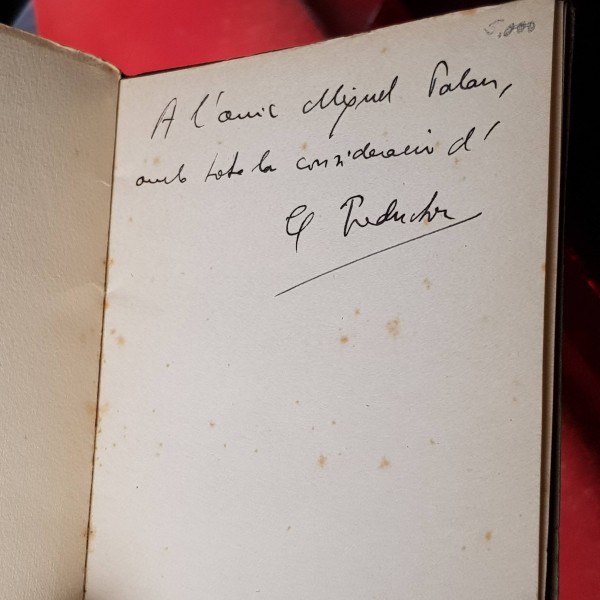 5,000
A l'amic Miquel Palau,
amb tota la consideració d'
El Traductor